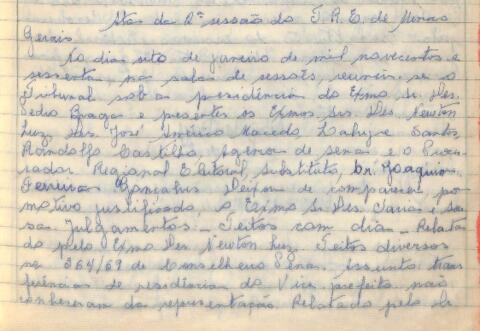 Ata da 2ª sessão do T.R.E. de Minas
Gerais
No dia sete de janeiro de mil novecentos e
sessenta na sala de sessões, reuniu-se o
Tribunal sob a presidência do Exmo Sr. Des.
Pedro Braga e presentes os Exmos. Srs. Des. Newton
Luz, Des. José Américo Macedo, Dahyr Santos,
Rondolfo Castilho, Agenor de Sena e o Procu-
rador Regional Eleitoral, substituto, Dr. Joaquim
Ferreira Gonçalves Deixou de comparecer, por
motivo justificado, o Exmo Sr. Des. Faria e
Julgamentos - Feitos com dia - Relata
do pelo Exmo Des. Newton Luz. Feitos diversos
nº 364/59 de Conselheiro Pena. Assunto trans
ferência de residência do Vice-prefeito não
conheceram da representação. Relatado pelo